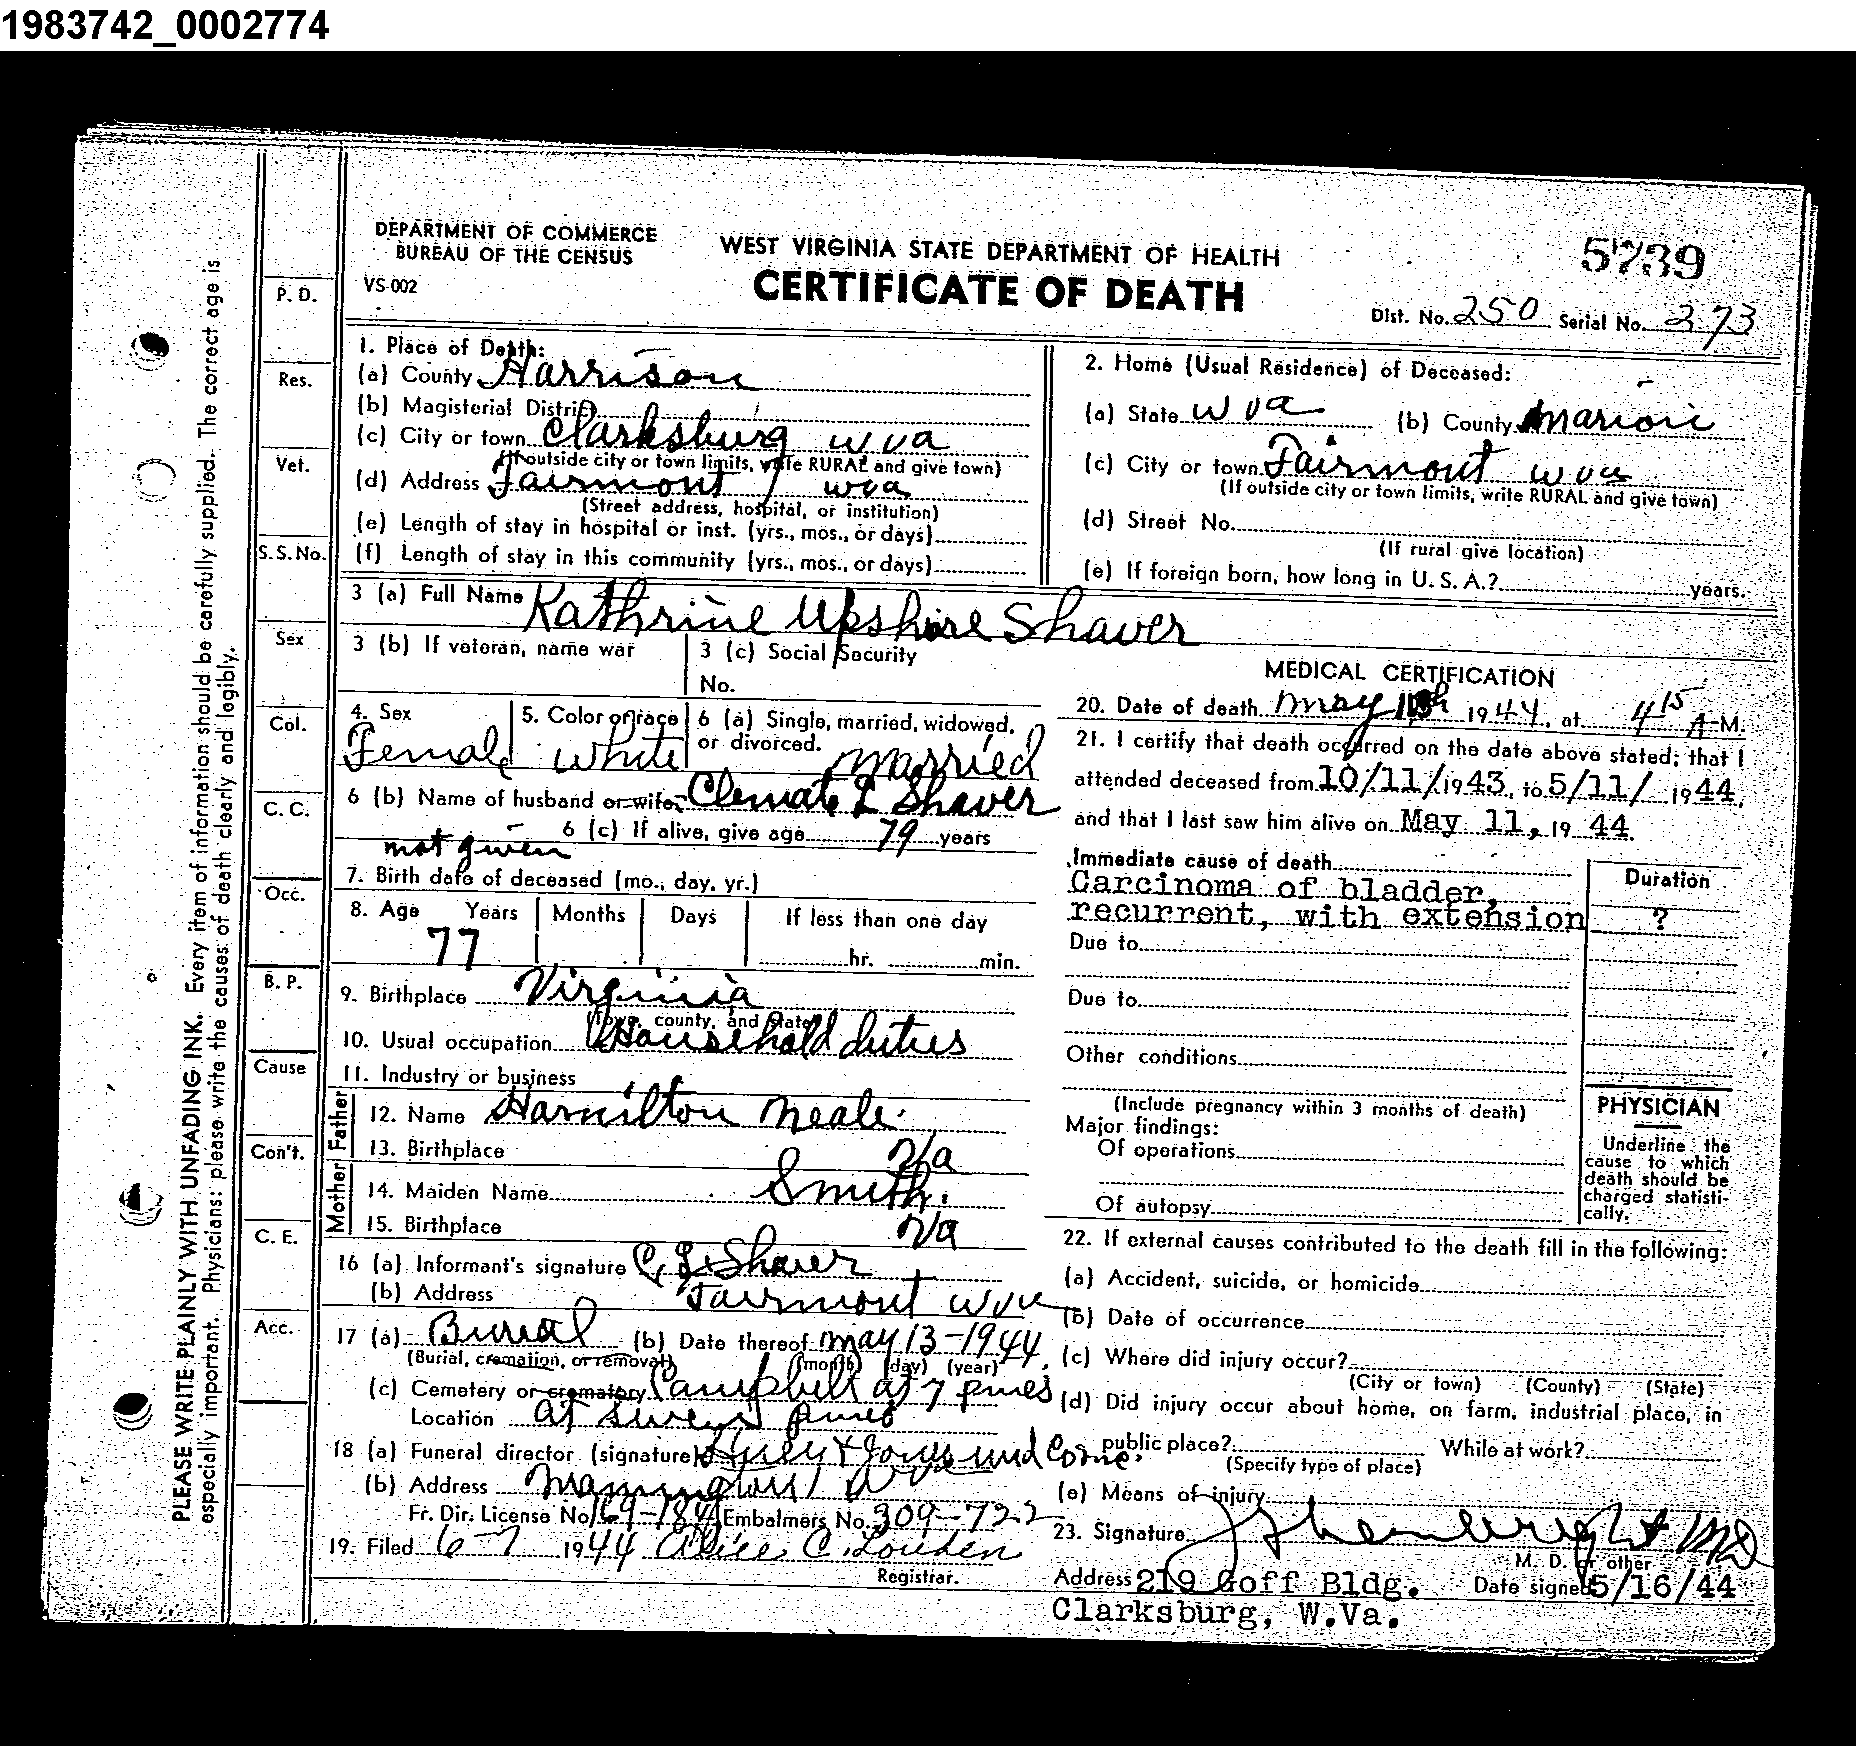 1983742_0002774
DEPARTMENT OF COMMERCE
BUREAU OF THE CENSUS
VS-002
WEST VIRGINIA STATE DEPARTMENT OF HEALTH
CERTIFICATE OF DEATH
5739
Dist. No. 250 Serial No. 273
1. Place of Death:
(a) County Harrison
(b) Magisterial District
(c) City or town Clarksburg W Va
(If outside city or town limits, write RURAL and give town)
(d) Address Fairmont W Va
(Street address, hospital, or institution)
(e) Length of stay in hospital or inst. (yrs., mos., or days)
(f) Length of stay in this community (yrs., mos., or days)
2. Home (Usual Residence) of Deceased:
(a) State W Va (b) County Marion
(c) City or town Fairmont W Va
(If outside city or town limits, write RURAL and give town)
(d) Street No.
(If rural give location)
(e) If foreign born, how long in U. S. A.? years.
3 (a) Full Name Kathrine Upshire Shaver
3 (b) If veteran, name war
3 (c) Social Security
No.
4. Sex Female
5. Color or race White
6 (a) Single, married, widowed,
or divorced. married
6 (b) Name of husband or wife Clemate L Shaver
6 (c) If alive, give age 79 years
not given
7. Birth date of deceased (mo., day, yr.)
8. Age Years Months Days If less than one day
77 hr. min.
9. Birthplace Virginia
(Town, county, and State)
10. Usual occupation Household duties
11. Industry or business
Father
12. Name Hamilton Neale
13. Birthplace n/a
Mother
14. Maiden Name Smith
15. Birthplace n/a
16 (a) Informant's signature C. L. Shaver
(b) Address Fairmont W Va
17 (a) Bureal (b) Date thereof May 13-1944
(Burial, cremation, or removal) (month) (day) (year)
(c) Cemetery or crematory Campbell at 7 pines
Location at seven pines
18 (a) Funeral director (signature)
(b) Address Mannington W Va
Fr. Dir. License No. 169-184 Embalmers No. 309-722
19. Filed 6-7 1944 Alice C. Louden
Registrar.
MEDICAL CERTIFICATION
20. Date of death May 11th 1944, at 4 15 A-M.
21. I certify that death occurred on the date above stated; that I
attended deceased from 10/11/1943, to 5/11/ 1944,
and that I last saw him alive on May 11, 19 44.
Immediate cause of death
Carcinoma of bladder,
recurrent, with extension
Duration
?
Due to
Due to
Other conditions
(Include pregnancy within 3 months of death)
Major findings:
Of operations
Of autopsy
PHYSICIAN
Underline the
cause to which
death should be
charged statisti-
cally.
22. If external causes contributed to the death fill in the following:
(a) Accident, suicide, or homicide
(b) Date of occurrence
(c) Where did injury occur?
(City or town) (County) (State)
(d) Did injury occur about home, on farm, industrial place, in
public place? While at work?
(Specify type of place)
(e) Means of injury
23. Signature MD
M. D. or other
Address 219 Goff Bldg. Date signed 5/16/44
Clarksburg, W.Va.
P. D.
Res.
Vet.
S. S. No.
Sex
Col.
C. C.
Occ.
B. P.
Cause
Con't.
C. E.
Acc.
PLEASE WRITE PLAINLY WITH UNFADING INK. Every item of information should be carefully supplied. The correct age is
especially important. Physicians: please write the causes of death clearly and legibly.